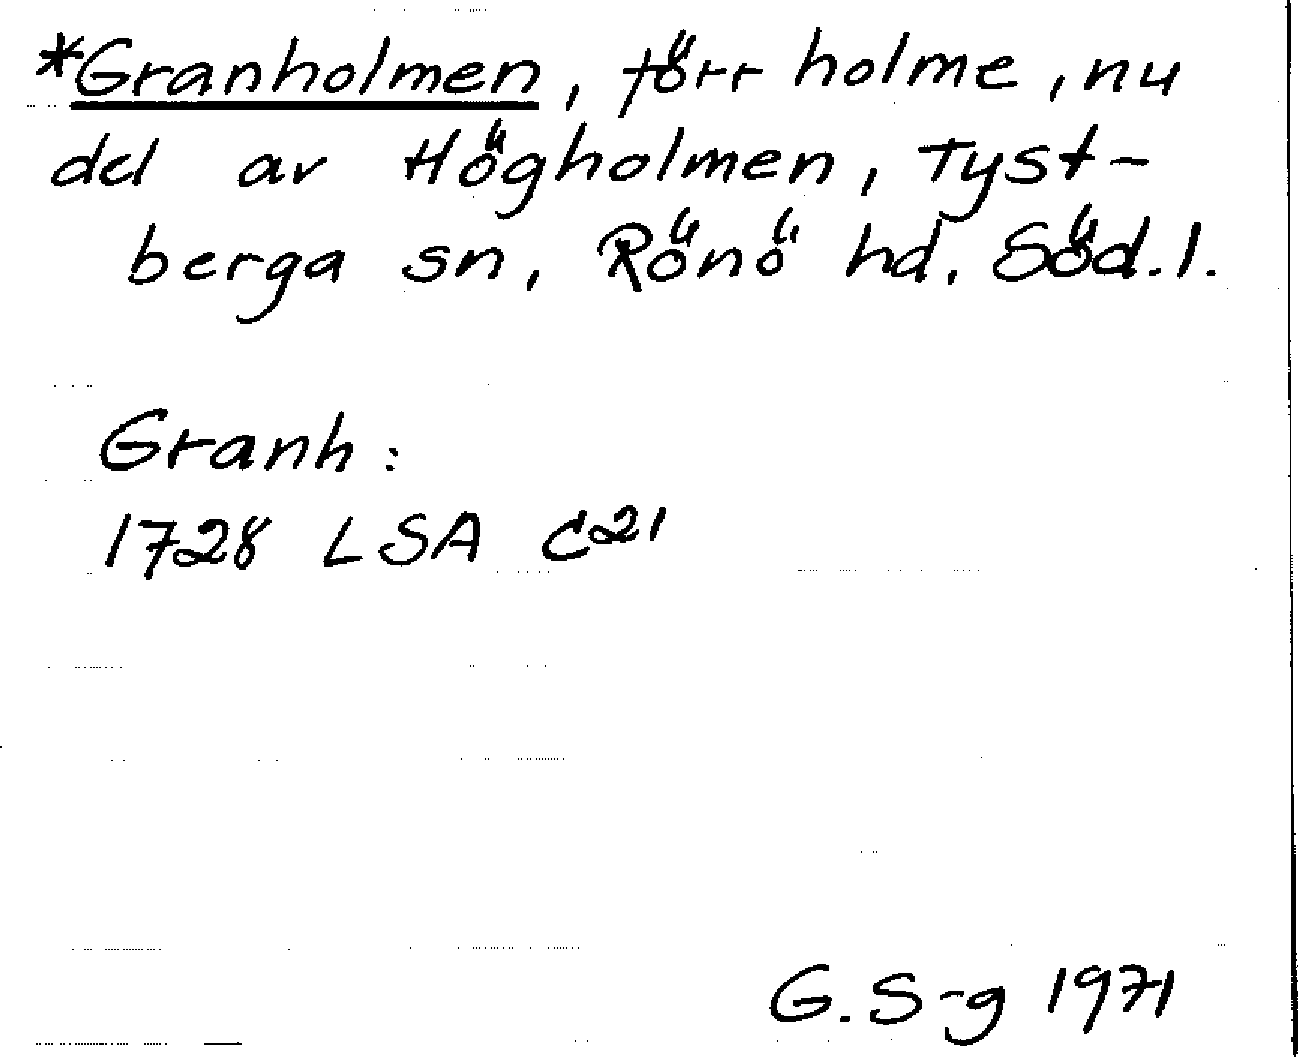 *Granholmen, förr holme, nu
del av Högholmen, Tyst-
berga sn, Rönö hd, Söd.l.
Granh:
1728 LSA C21
G. S-g 1971